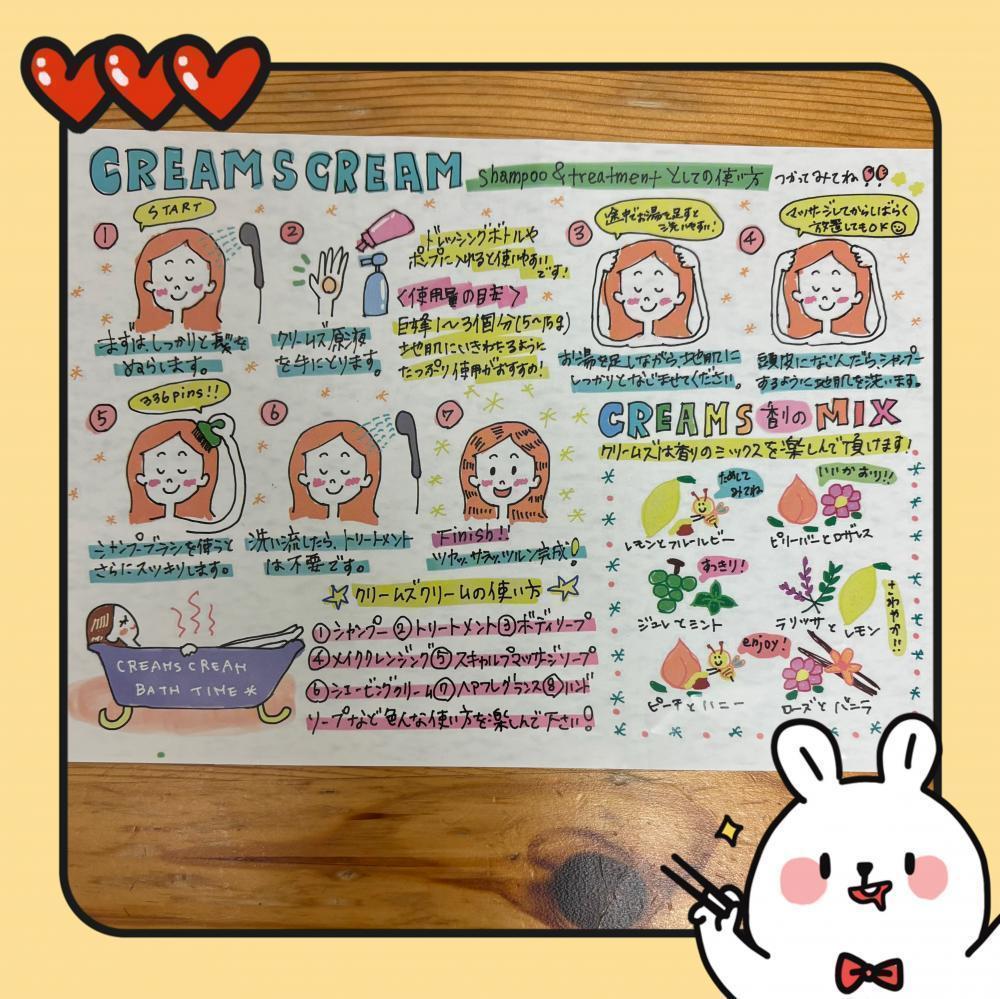 CREAMSCREAM shampoo&treatmentとしての使い方 つかってみてね!!
START
①
まずは、しっかりと髪を
ぬらします。
②
クリームズ原液
を手にとります。
ドレッシングボトルや
ポンプに入れると使いやすい
です!
〈使用量の目安〉
巨峰1〜3個分(5〜15g)
地肌にいきわたるように
たっぷり使用がおすすめ!
③
途中でお湯を足すと
洗いやすい!
お湯を足しながら、地肌に
しっかりとなじませてください。
④
マッサージしてからしばらく
放置してもOK
頭皮になじんだら、シャンプー
するように地肌を洗います。
⑤
336pins!!
シャンプーブラシを使うと
さらにスッキリします。
⑥
洗い流したら、トリートメント
は不要です。
⑦
Finish!!
ツヤッ、サラッ、ツルン完成!
CREAMS 香りの MIX
クリームズは香りのミックスを楽しんで頂けます!
ためして
みてね
レモンとフルールビー
いいかおり!!
ピーリーバーとロザレス
すっきり!
ジュレとミント
さわやか!!
ラリッサとレモン
enjoy!
ピーチとハニー
ローズとバニラ
クリームズクリームの使い方
①シャンプー②トリートメント③ボディソープ
④メイククレンジング⑤スキャルプマッサージソープ
⑥シェービングクリーム⑦ヘアフレグランス⑧ハンド
ソープなど色んな使い方を楽しんで下さい!
CREAMS CREAM
BATH TIME*